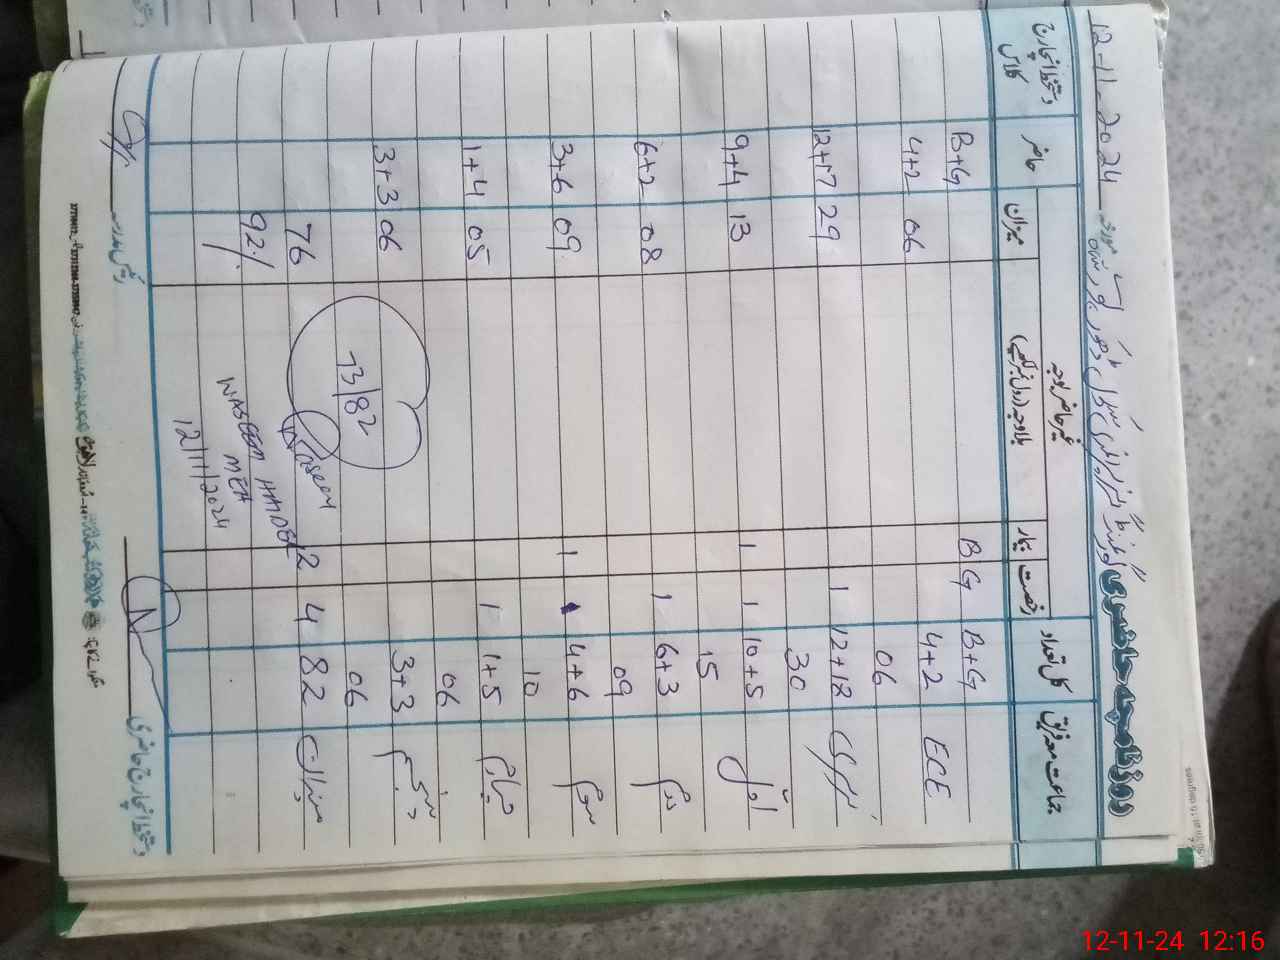 روزنامچہ حاضری
12-11-2024
جماعت معہ فریق
کل تعداد
رخصت
بیمار
غیر حاضر بلاوجہ
میزان
حاضر
دستخط انچارج کلاس
B+G B G B+G
ECE 4+2 06 06 4+2
نرسری 12+18 30 1 29 12+17
اوّل 10+5 15 1 1 13 9+4
دوئم 6+3 09 1 08 6+2
سوئم 4+6 10 1 09 3+6
چہارم 1+5 06 1 05 1+4
پنجم 3+3 06 06 3+3
میزان 82 4 2 76
92%
73/82
Waseem
WASEEM HAIDER
MEA
12/11/2024
دستخط انچارج حاضری
12-11-24 12:16